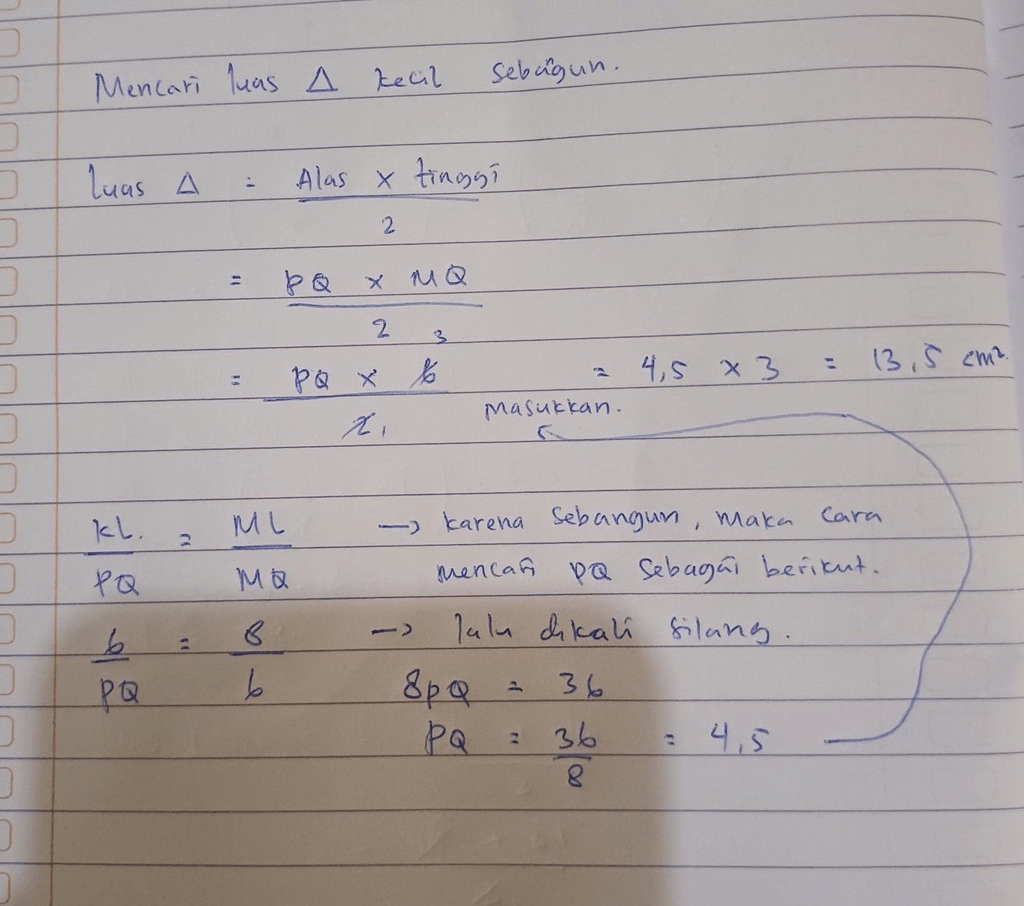 Mencari luas Δ kecil sebangun.
Luas Δ = Alas x tinggi
2
= PQ x MQ
2 3
= PQ x 6 = 4,5 x 3 = 13,5 cm²
2 1 Masukkan.
KL. = ML → karena sebangun, maka cara
PQ MQ mencari PQ sebagai berikut.
6 = 8 → lalu dikali silang.
PQ 6 8PQ = 36
PQ = 36 = 4,5
8